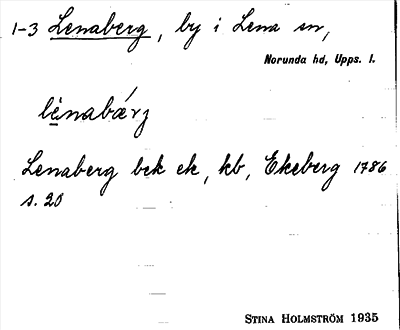 1-3 Lenaberg, by i Lena sn,
Norunda hd, Upps. l.
lènabǽrj
Lenaberg bck ek, kb, Ekeberg 1786
s. 20
STINA HOLMSTRÖM 1935